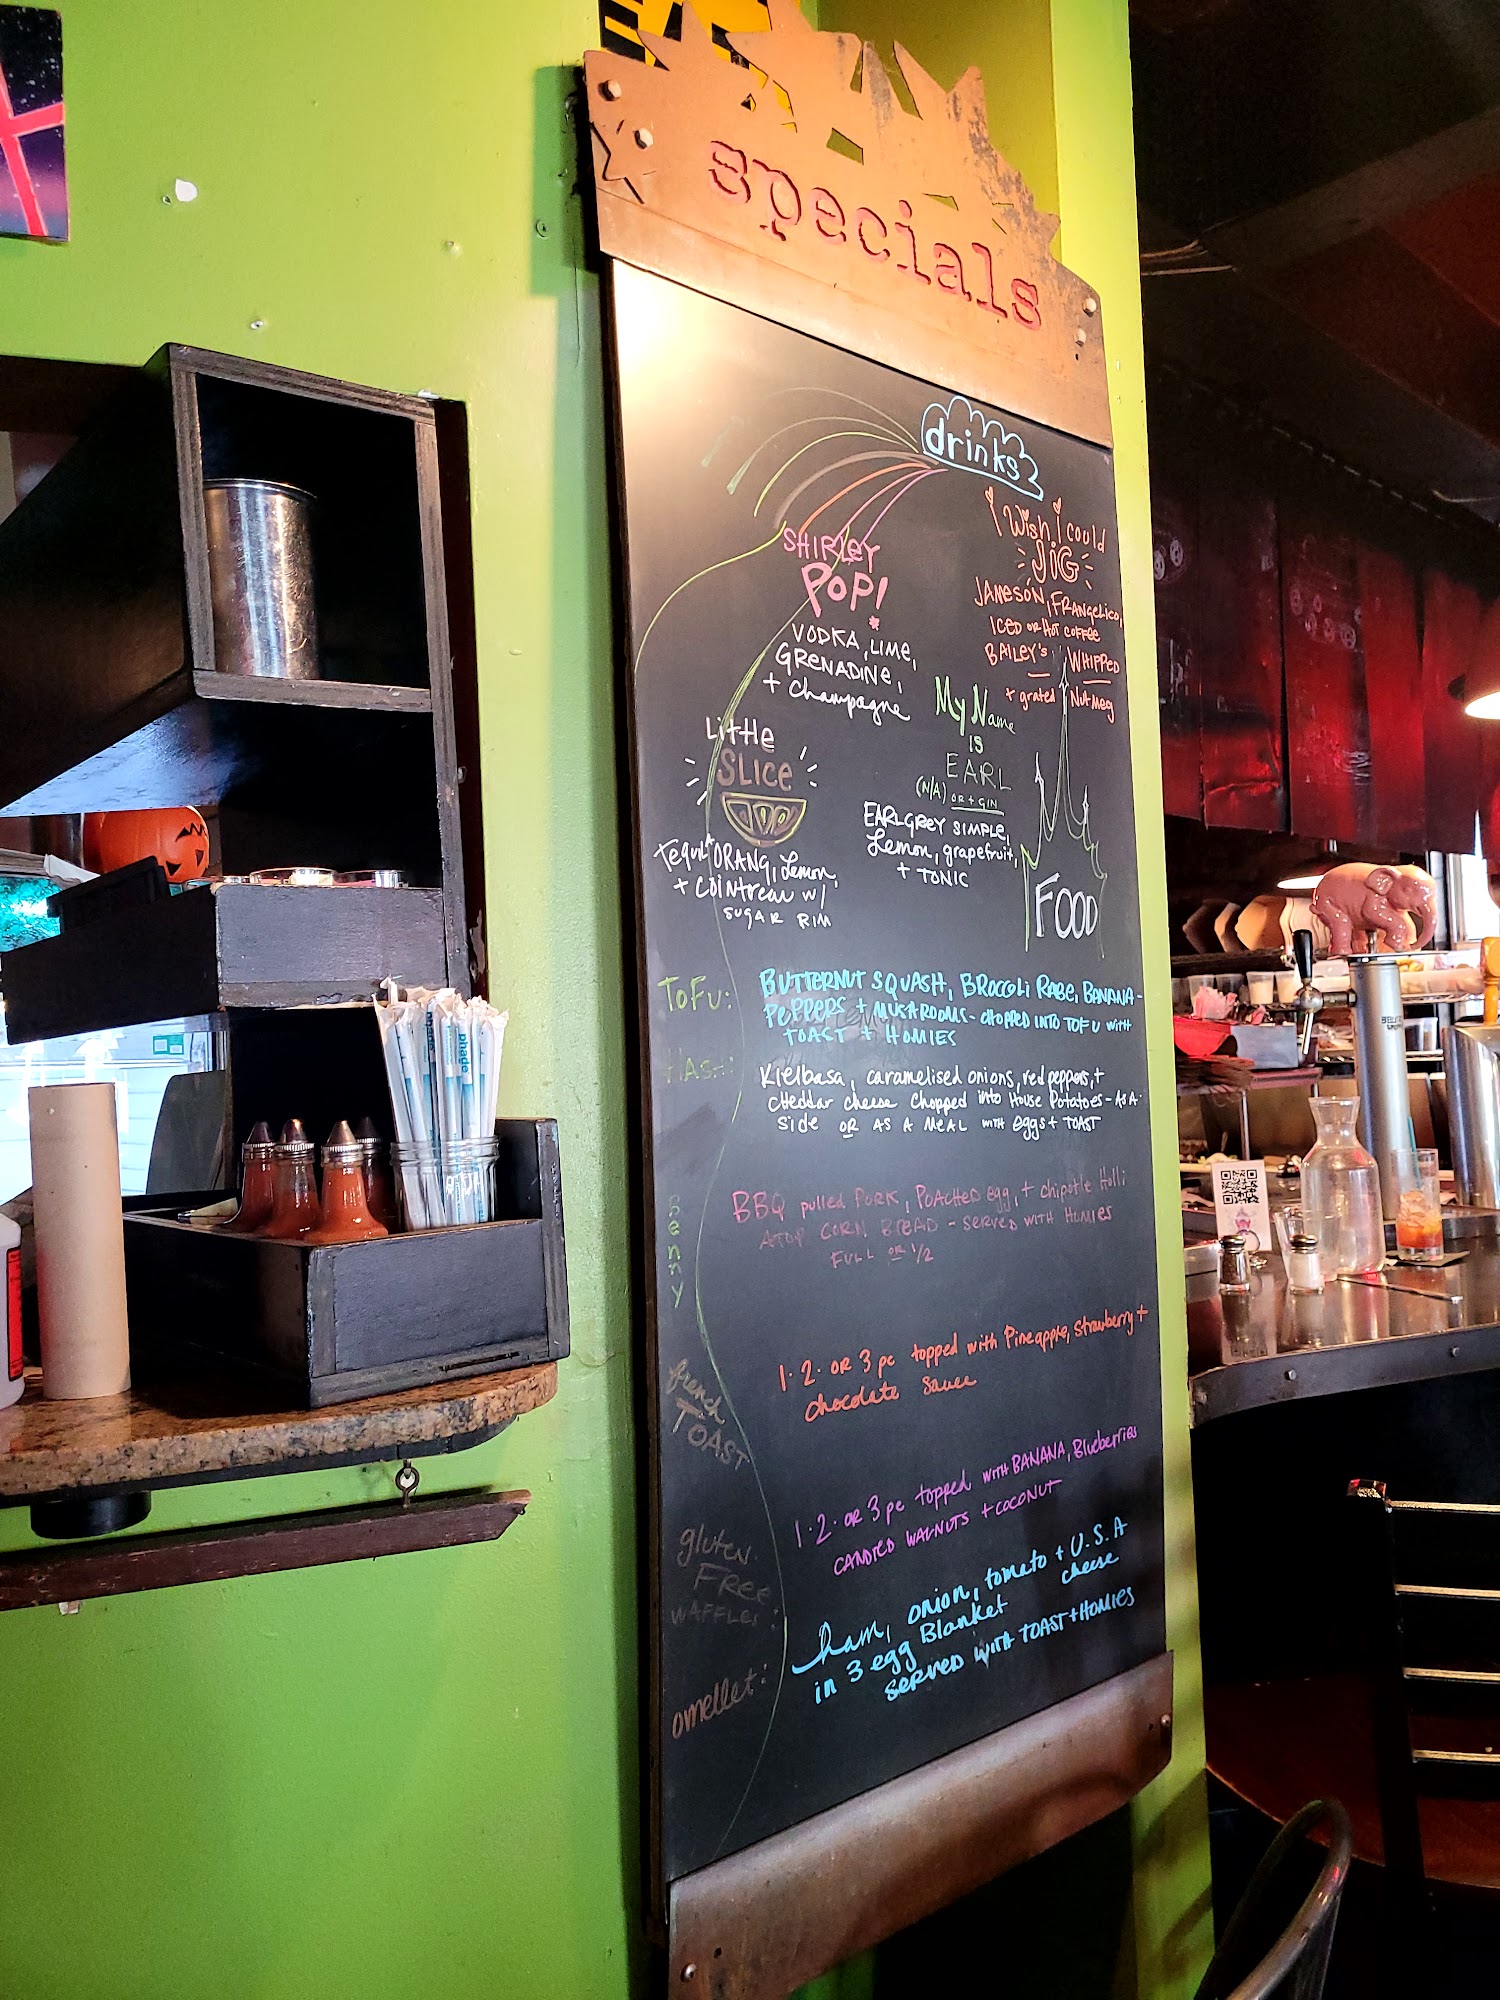 specials
drinks
SHIRLEY
POP!
VODKA, LIME,
GRENADINE,
+ Champagne
I Wish I could
JIG
JAMESON, FRANGELICO,
ICED OR HOT COFFEE
BAILEY'S WHIPPED
+ grated Nutmeg
Little
SLICE
TequilA ORANG, Lemon,
+ COINTREAU W/
SUGAR RIM
My Name
IS
EARL
(N/A) OR + GIN
EARL GREY SIMPLE,
Lemon, grapefruit,
+ TONIC
FOOD
TOFU:
BUTTERNUT SQUASH, BROCCOLI RABE, BANANA-
PEPPERS + MUSHROOMS - CHOPPED INTO TOFU WITH
TOAST + HOMIES
HASH:
Kielbasa, caramelised onions, red peppers, +
cheddar cheese chopped into House Potatoes - AS A
side OR AS A MEAL WITH eggs + TOAST
Benny
BBQ pulled PORK, POACHED egg, + chipotle Holli
ATOP CORN BREAD - SERVED WITH HOMIES
FULL OR 1/2
french
TOAST
1 · 2 · OR 3 pc topped with Pineapple, strawberry +
chocolate sauce
gluten
FREE
WAFFLES:
1 · 2 · OR 3 pc topped WITH BANANA, Blueberries
CANDIED WALNUTS + COCONUT
omellet:
ham, onion, tomato + U.S.A
cheese
in 3 egg Blanket
SERVED WITH TOAST + HOMIES
phade